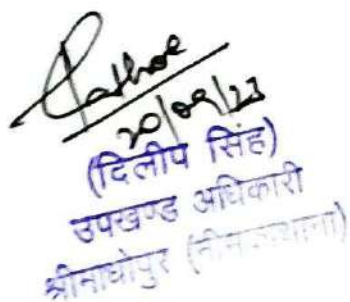 Rathor
20/09/23
(दिलीप सिंह)
उपखण्ड अधिकारी
श्रीमाधोपुर (नीमकाथाना)